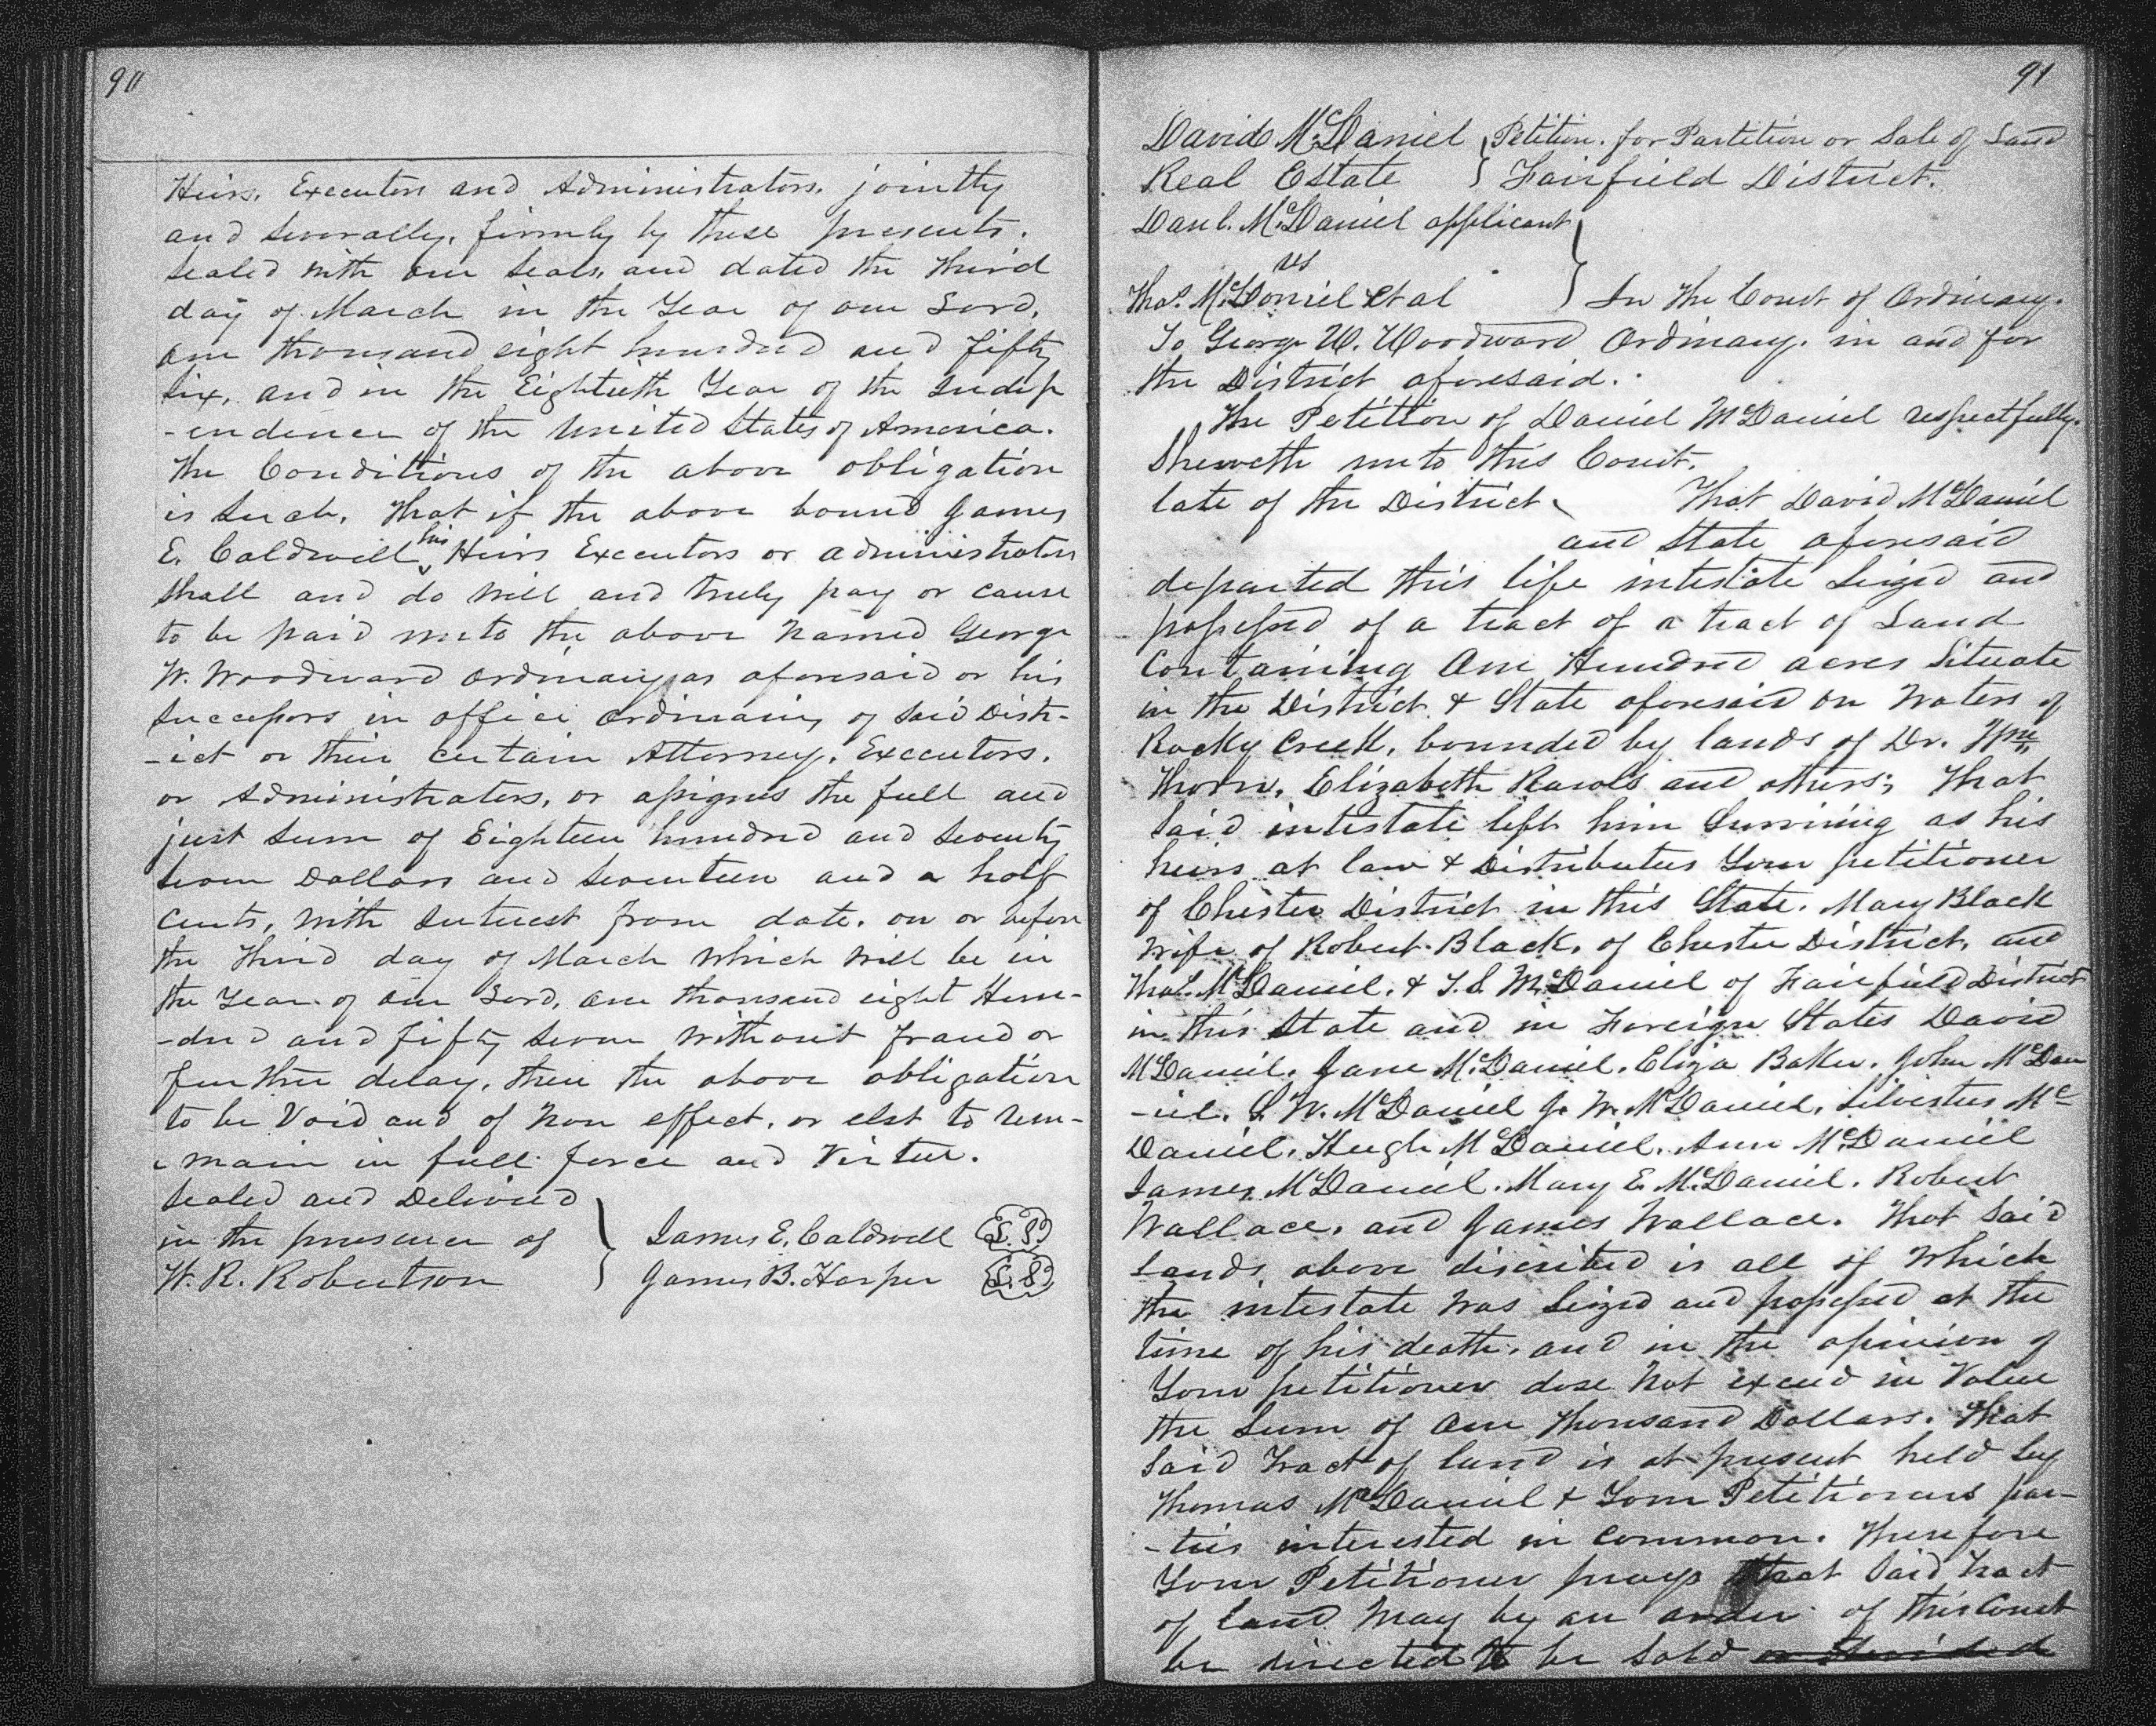 90
Heirs, Executors and Administrators, jointly
and Severally, firmly by these presents.
Sealed with our Seals, and dated the third
day of March in the Year of our Lord,
one thousand eight hundred and fifty
Six, and in the Eightieth Year of the Indep
-endence of the United States of America.
The Conditions of the above obligation
is Such, that if the above bound James
E. Caldwell, his Heirs Executors or administrators
Shall and do Well and truly pay or cause
to be paid unto the above Named George
W. Woodward Ordinary as aforesaid or his
Successors in office Ordinary of Said Distr-
-ict or their certain Attorney, Executors,
or Administrators, or assigns the full and
just Sum of Eighteen hundred and Seventy
Seven Dollars and Seventeen and a half
Cents, With Interest from date, on or before
the third day of March which will be in
the Year of our Lord, one thousand eight Hun-
-dred and fifty Seven Without fraud or
further delay, then the above obligation
to be Void and of Non effect, or else to rem-
-main in full force and Virtue.
Sealed and Delivered
in the presence of } James E. Caldwell (L.S.)
W. R. Robertson James B. Harper (L.S.)
91
David McDaniel } Petition for Partition or Sale of Land
Real Estate } Fairfield District.
Danl. McDaniel applicant
vs
Thos. McDoniel et al } In the Court of Ordinary.
To George W. Woodward Ordinary in and for
the District aforesaid.
The Petition of Daniel McDaniel respectfully
Sheweth unto this Court.
late of the District That David McDaniel
and State aforesaid
departed this life intestate Seized and
possessed of a tract of a tract of Land
Containing One Hundred acres Situate
in the District & State aforesaid on Waters of
Rocky Creek, bounded by lands of Dr. Wm
Thorn, Elizabeth Rawls and others; That
Said intestate left him Surviving as his
heirs at law & Distributees Your petitioner
of Chester District in this State, Mary Black
wife of Robert Black, of Chester District, and
Thos. McDaniel, & T. S. McDaniel of Fairfield District
in this State and in Foreign States David
McDaniel, Jane McDaniel, Eliza Baker, John McDan
-iel, S. W. McDaniel J. W. McDaniel, Silvester Mc
Daniel, Hugh McDaniel, Ann McDaniel
James McDaniel, Mary E. McDaniel, Robert
Wallace, and James Wallace. That Said
Lands above discribed is all of Which
the intestate Was Seized and possessed at the
time of his death, and in the opinion of
Your petitioner dose Not exceed in Value
the Sum of One thousand Dollars. That
Said tract of land is at present held by
Thomas McDaniel & Your Petitioners par-
-ties interested in common. Therefore
Your Petitioner prays that Said tract
of land May by an order of this Court
be directed to be Sold or devided